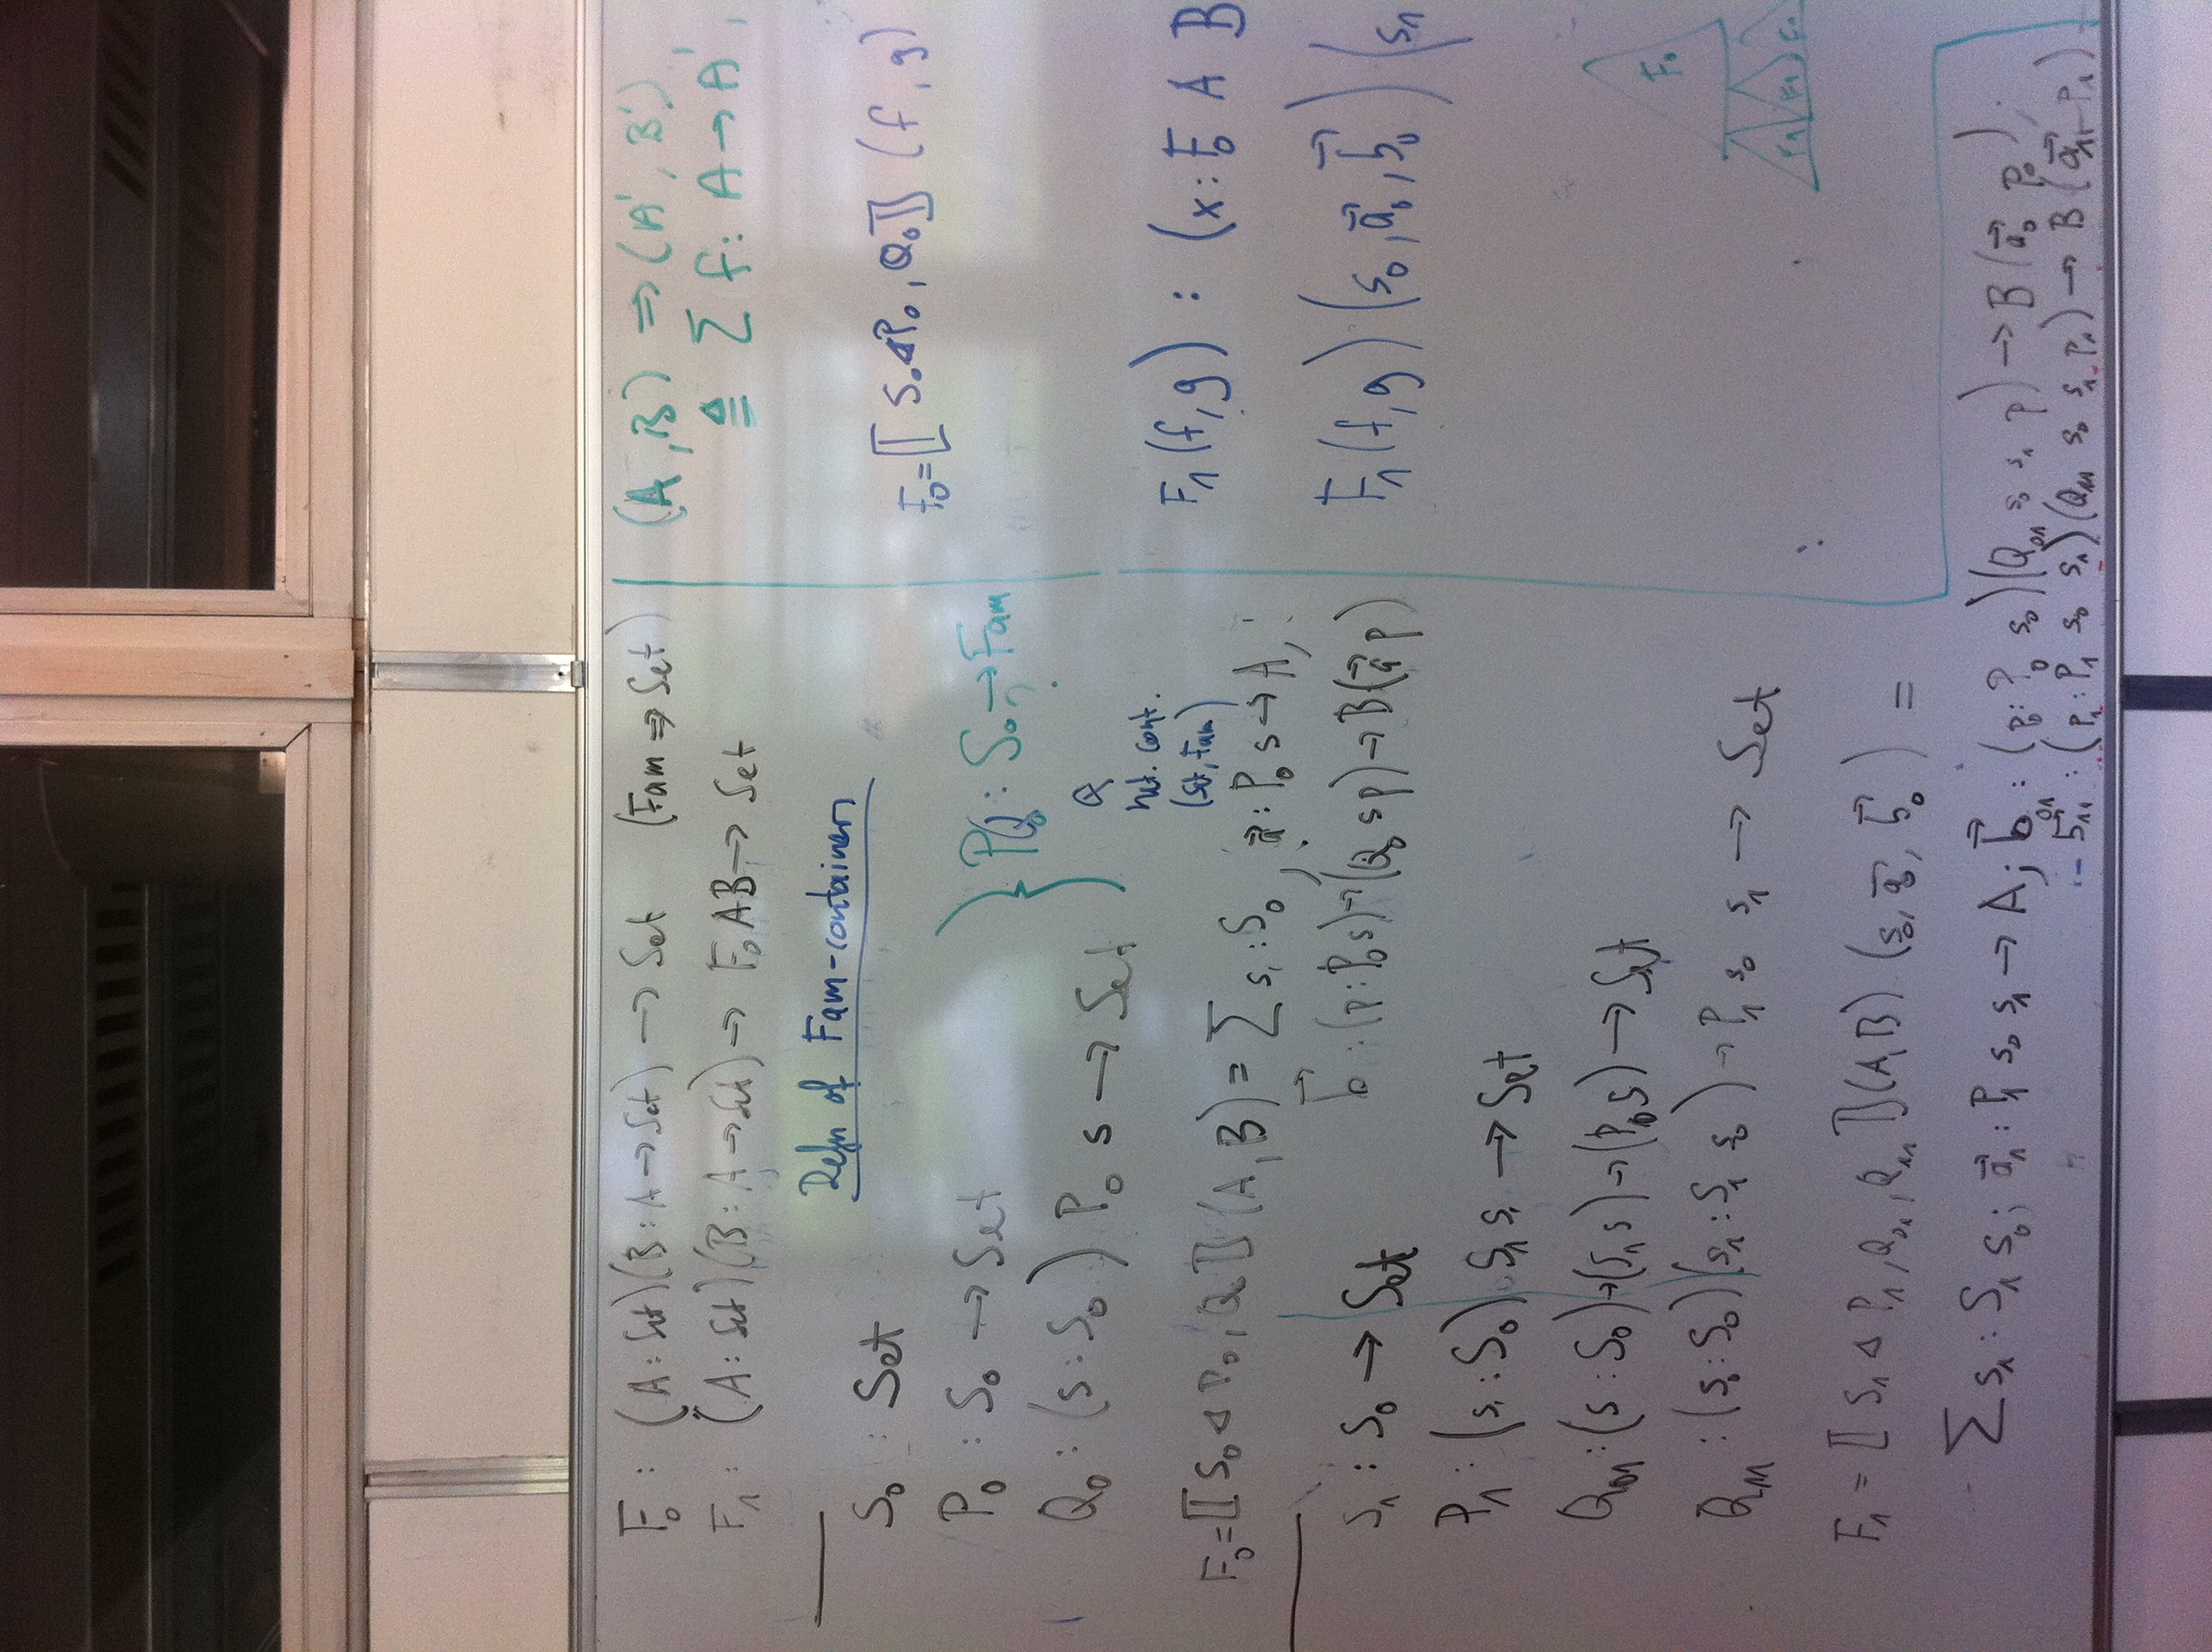 F₀ : (A : Set)(B : A → Set) → Set (Fam ⇒ Set)
F₁ : (A : Set)(B : A → Set) → F₀ A B → Set
Defn of Fam-containers
S₀ : Set
P₀ : S₀ → Set
Q₀ : (s : S₀) P₀ s → Set
} PQ₀ : S₀ → Fam
?
Q
(Set, Fam)
F₀ = ⟦ S₀ ◁ P₀, Q₀ ⟧ (A, B) = Σ s : S₀, a⃗ : P₀ s → A,
b⃗ : (p : P₀ s) → (Q₀ s p) → B (a⃗ p)
S₁ : S₀ → Set
P₁ : (s : S₀) S₁ s → Set
Q₀₁ : (s : S₀) → (S₁ s) → (P₀ s) → Set
Q₁₁ : (s₀ : S₀)(s₁ : S₁ s₀) → P₁ s₀ s₁ → Set
F₁ = ⟦ S₁ ◁ P₁, Q₀₁, Q₁₁ ⟧ (A, B) (s₀, a⃗₀, b⃗₀) =
Σ s₁ : S₁ s₀; a⃗₁ : P₁ s₀ s₁ → A; b⃗₀₁ : (p₀ : P₀ s₀)(Q₀₁ s₀ s₁ p) → B (a⃗₀ p₀);
b⃗₁₁ : (p₁ : P₁ s₀ s₁)(Q₁₁ s₀ s₁ p₁) → B (a⃗₁ p₁)
(A, B) ⇒ (A', B')
≜ Σ f : A → A',
F₀ = ⟦ S₀ ◁ P₀, Q₀ ⟧ (f, g)
F₁ (f, g) : (x : F₀ A B
F₁ (f, g) (s₀, a⃗₀, b⃗₀) (s₁
F₀
F₁ F₁ F₁